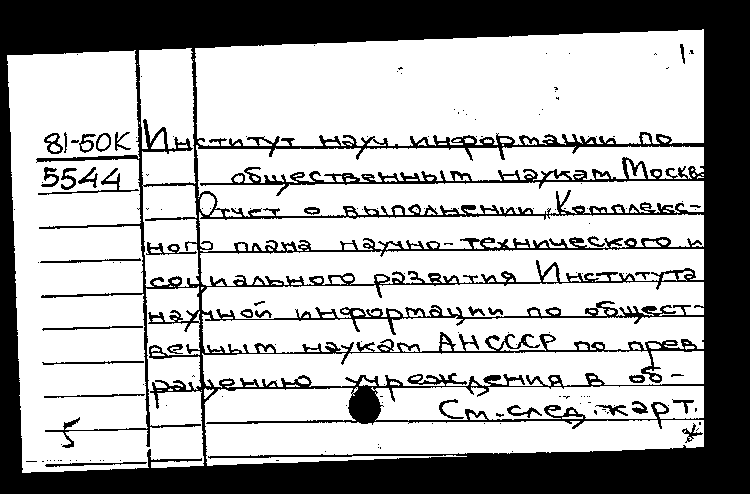 1.
81-50К Институт науч. информации по
5544 общественным наукам. Москва
Отчет о выполнении „Комплекс-
ного плана научно-технического и
социального развития Института
научной информации по общест-
венным наукам АНСССР по прев
ращению учреждения в об-
См. след. карт.
5